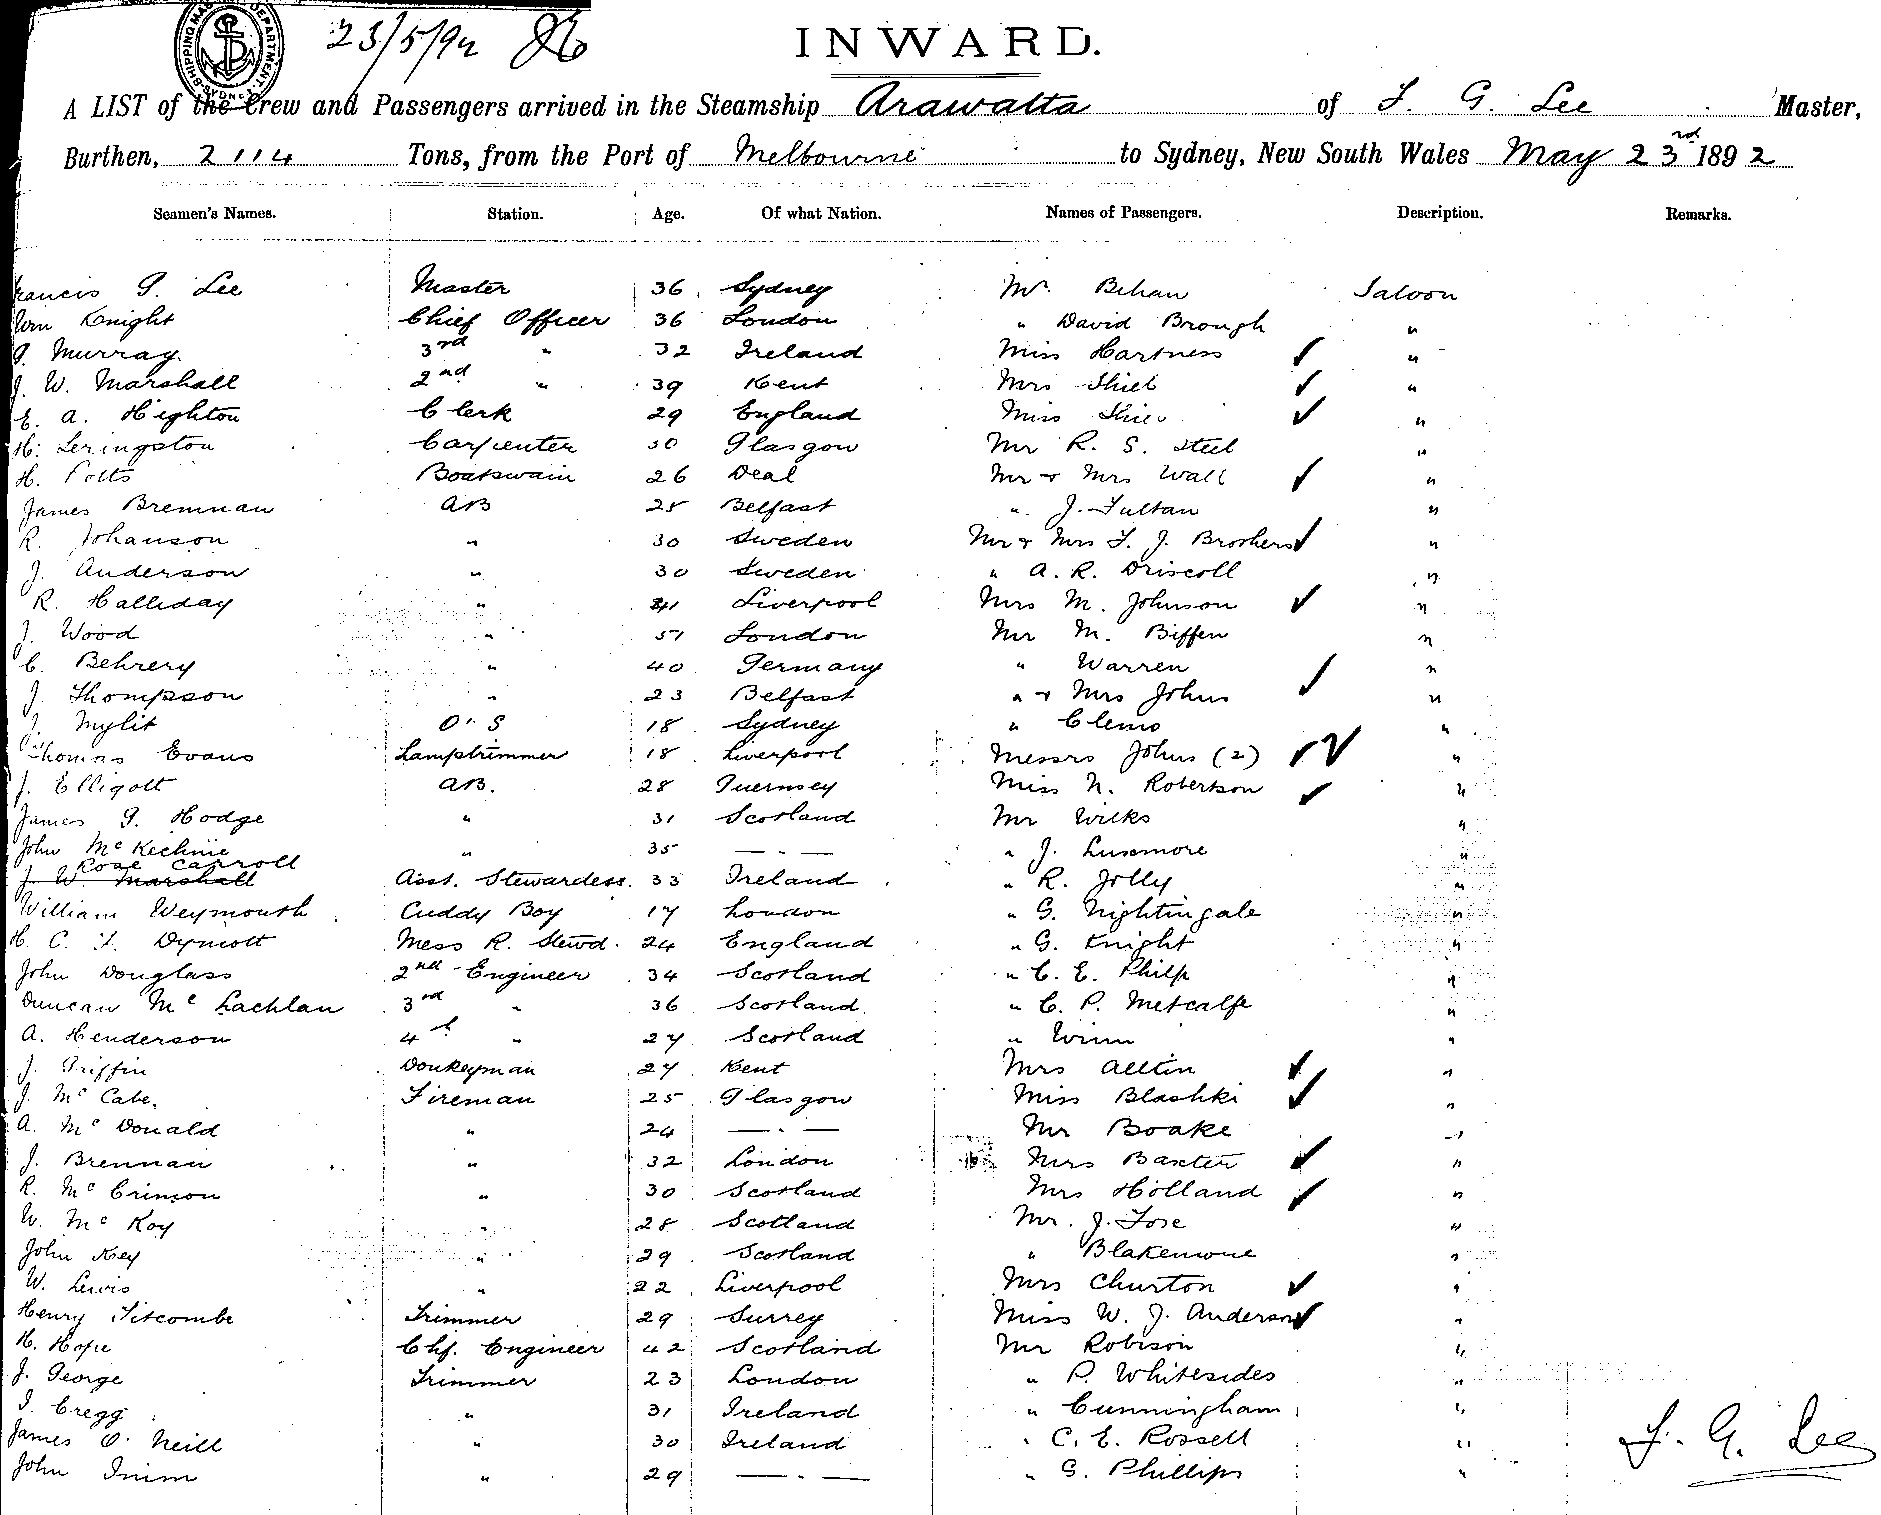 SHIPPING MASTER'S DEPARTMENT SYDNEY
23/5/92
INWARD.
A LIST of the Crew and Passengers arrived in the Steamship Arawatta of F. G. Lee Master,
Burthen, 2114 Tons, from the Port of Melbourne to Sydney, New South Wales May 23rd 1892
Seamen's Names. Station. Age. Of what Nation. Names of Passengers. Description. Remarks.
Francis G. Lee Master 36 Sydney Mr. Behan Saloon
Wm Knight Chief Officer 36 London " David Brough "
J. Murray 3rd " 32 Ireland Miss Hartness "
J. W. Marshall 2nd " 39 Kent Mrs Shiel "
E. A. Highton Clerk 29 England Miss Shiel "
H. Leringston Carpenter 30 Glasgow Mr R. S. Steel "
H. Potts Boatswain 26 Deal Mr & Mrs Wall "
James Bremnan AB 28 Belfast " J. Fultan "
R. Johanson " 30 Sweden Mr & Mrs F. J. Brothers "
J. Anderson " 30 Sweden " A. R. Driscoll "
R. Halliday " Liverpool Mrs M. Johnson "
J. Wood " 51 London Mr M. Biffen "
C. Behrery " 40 Germany " Warren "
J. Thompson " 23 Belfast " & Mrs Johns "
J. Mylit O. S 18 Sydney " Clemo "
Thomas Evans Lamptrimmer 18 Liverpool Messrs Johns (2) "
J. Elligott AB. 28 Guernsey Miss N. Robertson "
James G. Hodge " 31 Scotland Mr Wilks "
John McKechnie " 35 — " — " J. Luxmore "
Rose Carroll
J. W. Marshall Asst. Stewardess. 33 Ireland " R. Jolly "
William Weymouth Cuddy Boy 17 London " G. Nightingale "
H. C. F. Dymott Mess R. Stewd. 24 England " G. Knight "
John Douglass 2nd Engineer 34 Scotland " C. E. Philp "
Duncan Mc Lachlan 3rd " 36 Scotland " C. P. Metcalfe "
A. Henderson 4th " 27 Scotland " Winn "
J. Griffin Donkeyman 27 Kent Mrs Alltin "
J. McCabe. Fireman 25 Glasgow Miss Blashki "
A. McDonald " 24 — " — Mr Boake "
J. Brennan " 32 London Mrs Baxter "
R. McCrimon " 30 Scotland Mrs Holland "
W. McKoy " 28 Scotland Mr. J. Fose "
John Key " 29 Scotland " Blakemore "
W. Lewis " 22 Liverpool Mrs Churton "
Henry Titcombe Trimmer 29 Surrey Miss W. J. Anderson "
H. Hope Chf. Engineer 42 Scotland Mr Robison "
J. George Trimmer 23 London " P. Whitesides "
J. Cregg " 31 Ireland " Cunningham "
James O'Neill " 30 Ireland " C. E. Rossell "
John " 29 — " — " G. Phillips "
F. G. Lee